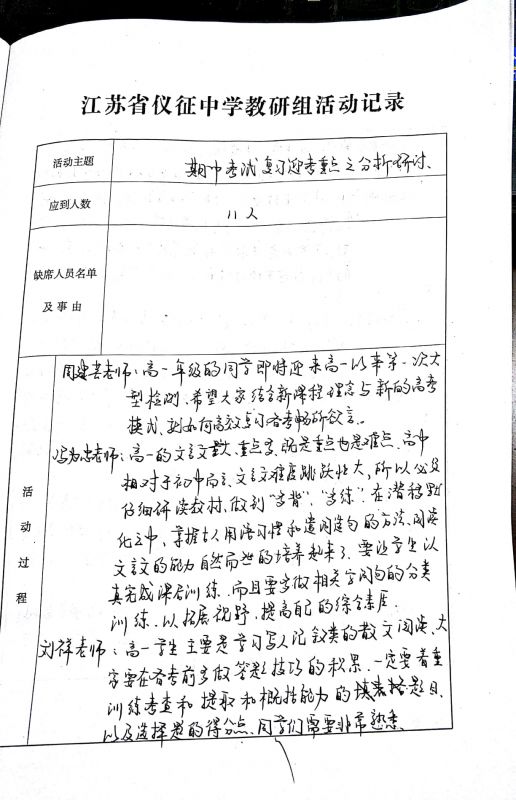 江苏省仪征中学教研组活动记录
活动主题
期中考试复习迎考重点之分析研讨、
应到人数
11人
缺席人员名单
及事由
活动过程
周建芸老师：高一年级的同学即将迎来高一以来第一次大
型检测、希望大家结合新课程理念与新的高考
模式、就如何高效复习备考畅所欲言。
老师：高一的文言文，重点字、既是重点也是难点、高中
相对于初中而言、文言文难度跳跃性大，所以必须
仔细研读教材、做到“常背”、“常练”、在潜移默
化之中，掌握古人用语习惯和遣词造句的方法、阅读
文言文的能力自然而然的培养起来了、要让学生认
真完成课后训练、而且要多做相关字词句的分类
训练、以拓展视野、提高自己的综合素质。
刘祥老师：高一学生主要是学习写人记叙类的散文阅读、大
家要在备考前多做答题技巧的积累、一定要着重
训练考查和提取和概括能力的题目、
以及选择题的得分点、同学们需要非常熟悉、